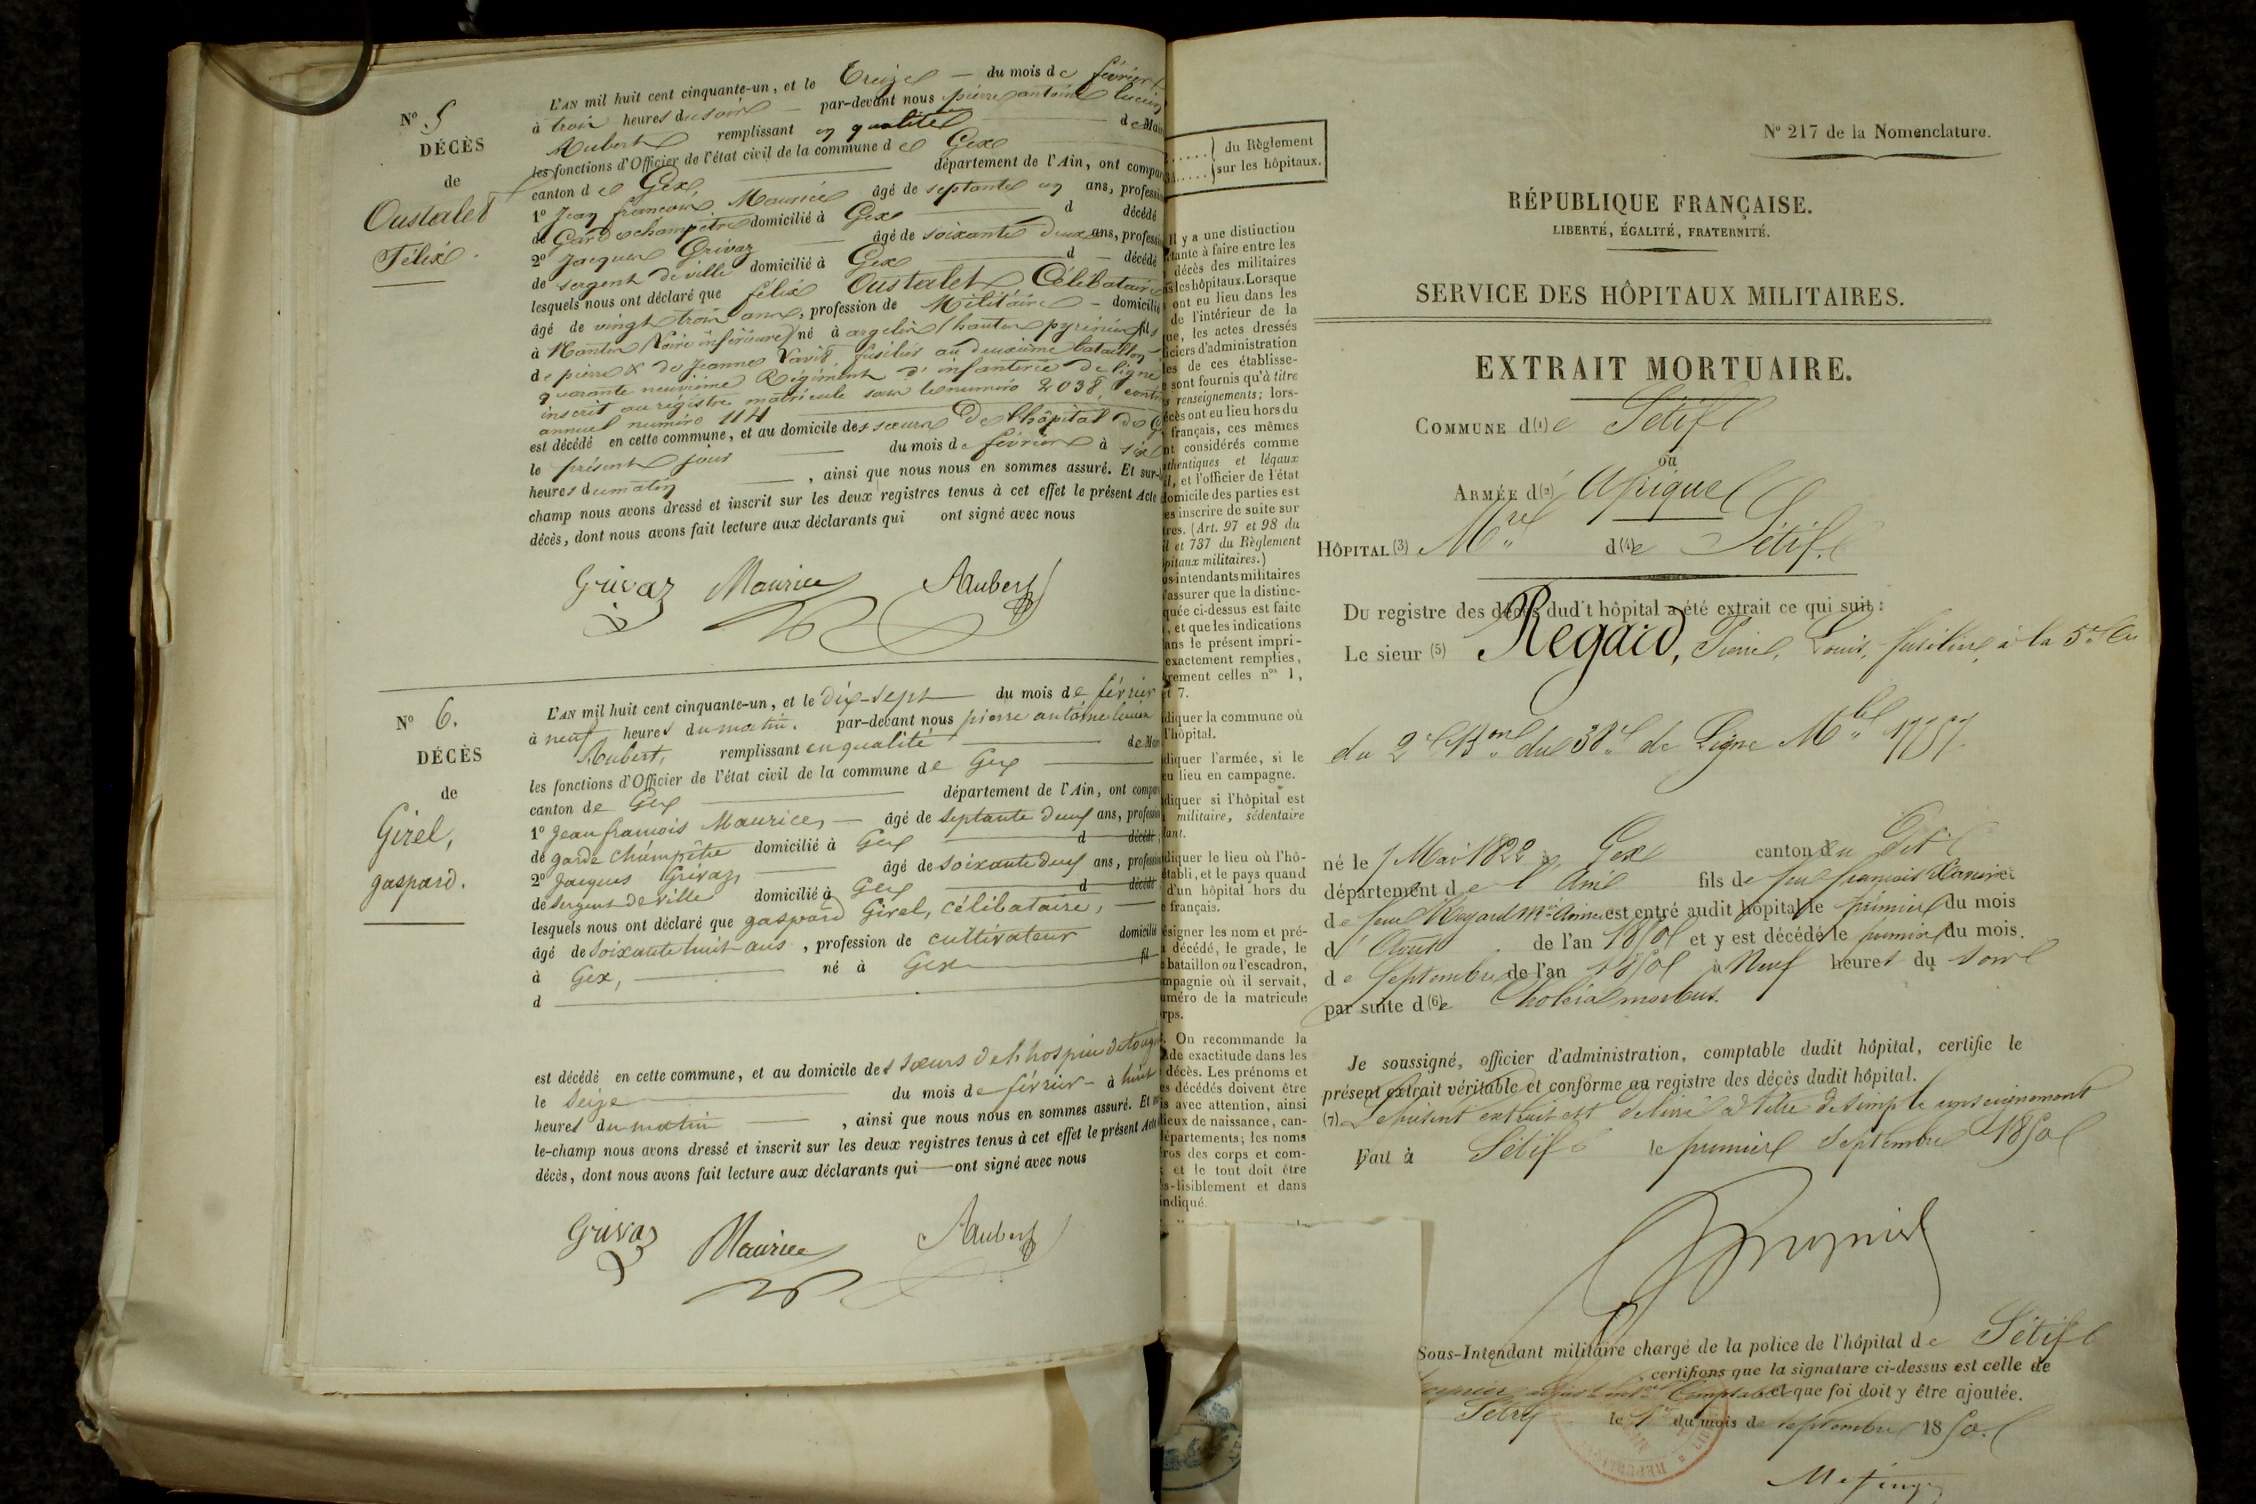 N° 5
DÉCÈS
de
Oustalet
Félix.
L'AN mil huit cent cinquante-un, et le Treize du mois de février
à trois heures du soir par-devant nous pierre antoine lucien
Aubert remplissant en qualité de Mai
les fonctions d'Officier de l'état civil de la commune de Gex
canton de Gex, département de l'Ain, ont compar
1° Jean françois Maurice âgé de septante un ans, profession
de Garde champêtre domicilié à Gex d décédé
2° Jacques Grivaz âgé de soixante deux ans, profession
de sergent de ville domicilié à Gex d décédé
lesquels nous ont déclaré que félix Oustalet Célibataire
âgé de vingt trois ans, profession de Militaire domicilié
à Nantes (Loire inférieure) né à argelès (hautes pyrénées fils
de pierre & de Jeanne fusilier au deuxième bataillon
quarante neuvième Régiment d'infanterie de ligne
inscrit au régistre matricule sous le numéro 2038,
annuel numéro 114
est décédé en cette commune, et au domicile des sœurs De l'hôpital de G
le présent jour du mois de février à six
heures du matin, ainsi que nous nous en sommes assuré. Et sur-
champ nous avons dressé et inscrit sur les deux registres tenus à cet effet le présent Acte
décès, dont nous avons fait lecture aux déclarants qui ont signé avec nous
Grivaz Maurice Aubert
N° 6.
DÉCÈS
de
Girel,
gaspard.
L'AN mil huit cent cinquante-un, et le dix-sept du mois de février
à neuf heures du matin. par-devant nous pierre antoine lucien
Aubert, remplissant en qualité de Mai
les fonctions d'Officier de l'état civil de la commune de Gex
canton de Gex département de l'Ain, ont compar
1° Jean françois Maurice, âgé de septante deux ans, profession
de garde champêtre domicilié à Gex d décédé
2° Jacques Grivaz, âgé de soixante deux ans, profession
de sergent de ville domicilié à Gex d décédé
lesquels nous ont déclaré que gaspard Girel, célibataire,
âgé de soixante huit ans, profession de cultivateur domicilié
à Gex, né à Gex fil
d
est décédé en cette commune, et au domicile des sœurs de l'hospice de
le seize du mois de février à huit
heures du matin, ainsi que nous nous en sommes assuré. Et
le-champ nous avons dressé et inscrit sur les deux registres tenus à cet effet le présent Acte
décès, dont nous avons fait lecture aux déclarants qui ont signé avec nous
Grivaz Maurice Aubert
du Règlement
sur les hôpitaux.
Il y a une distinction
tante à faire entre les
décès des militaires
les hôpitaux. Lorsque
ont eu lieu dans les
de l'intérieur de la
que, les actes dressés
iciers d'administration
les de ces établisse-
sont fournis qu'à titre
renseignements; lors-
écès ont eu lieu hors du
français, ces mêmes
nt considérés comme
thentiques et légaux
il, et l'officier de l'état
domicile des parties est
es inscrire de suite sur
tres. (Art. 97 et 98 du
il et 737 du Règlement
pitaux militaires.)
us-intendants militaires
'assurer que la distinc-
quée ci-dessus est faite
, et que les indications
ans le présent impri-
exactement remplies,
rement celles nos 1,
et 7.
diquer la commune où
l'hôpital.
diquer l'armée, si le
eu lieu en campagne.
diquer si l'hôpital est
militaire, sédentaire
lant.
diquer le lieu où l'hô-
établi, et le pays quand
d'un hôpital hors du
e français.
ésigner les nom et pré-
décédé, le grade, le
bataillon ou l'escadron,
mpagnie où il servait,
uméro de la matricule
rps.
On recommande la
de exactitude dans les
décès. Les prénoms et
s décédés doivent être
s avec attention, ainsi
lieux de naissance, can-
épartements; les noms
ros des corps et com-
; et le tout doit être
s-lisiblement et dans
indiqué.
N° 217 de la Nomenclature.
RÉPUBLIQUE FRANÇAISE.
LIBERTÉ, ÉGALITÉ, FRATERNITÉ.
SERVICE DES HÔPITAUX MILITAIRES.
EXTRAIT MORTUAIRE.
COMMUNE d(1)e Sétif
ou
ARMÉE d(2)' Afrique
HÔPITAL (3) Mre d(4)e Sétif.
Du registre des décès dud't hôpital a été extrait ce qui suit :
Le sieur (5) Regard, Pierre, Louis, fusilier à la 5e Cie
du 2e Bon du 38e de Ligne Mle
né le 7 Mai 1822 à Gex canton du dit
département de l'Ain fils de feu françois Xavier
de feue est entré audit hôpital le premier du mois
d' Août de l'an 1850 et y est décédé le premier du mois.
de Septembre de l'an 1850 à Neuf heures du soir
par suite d(6)e Choléra morbus.
Je soussigné, officier d'administration, comptable dudit hôpital, certifie le
présent extrait véritable et conforme au registre des décès dudit hôpital.
(7) Le présent extrait est délivré à titre de simple renseignement
Fait à Sétif le premier Septembre 1850
Sous-Intendant militaire chargé de la police de l'hôpital de Sétif
certifions que la signature ci-dessus est celle de
Comptable et que foi doit y être ajoutée.
Sétif le 1er du mois de septembre 1850.